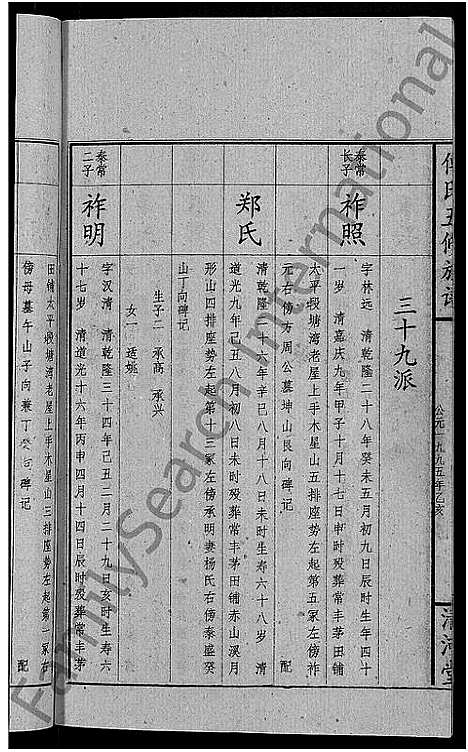 氏五修族谱
公元一九九五年乙亥
清河堂
三十九派
泰常长子
祚照
字林远 清乾隆二十八年癸未五月初九日辰时生年四十
一岁 清嘉庆九年甲子十月十七日申时殁葬常丰茅田铺
太平段塘湾老屋上手木星山五排座势左起第五冢左傍祚
元右傍方周公墓坤山艮向碑记 配
郑氏
清乾隆二十六年辛巳八月十八日未时生寿六十八岁 清
道光九年己丑八月初八日未时殁葬常丰茅田铺赤山溪月
形山四排座势左起第十三冢左傍承明妻杨氏右傍泰盛癸
山丁向碑记
生子二 承高 承兴
女一 适姚
泰常二子
祚明
字汉清 清乾隆三十四年己丑二月二十九日亥时生寿六
十七岁 清道光十六年丙申四月十四日辰时殁葬常丰茅
田铺太平段塘湾老屋上手木星山三排座势左起第一冢右
傍母墓午山子向兼丁癸 碑记 配
FamilySearch International